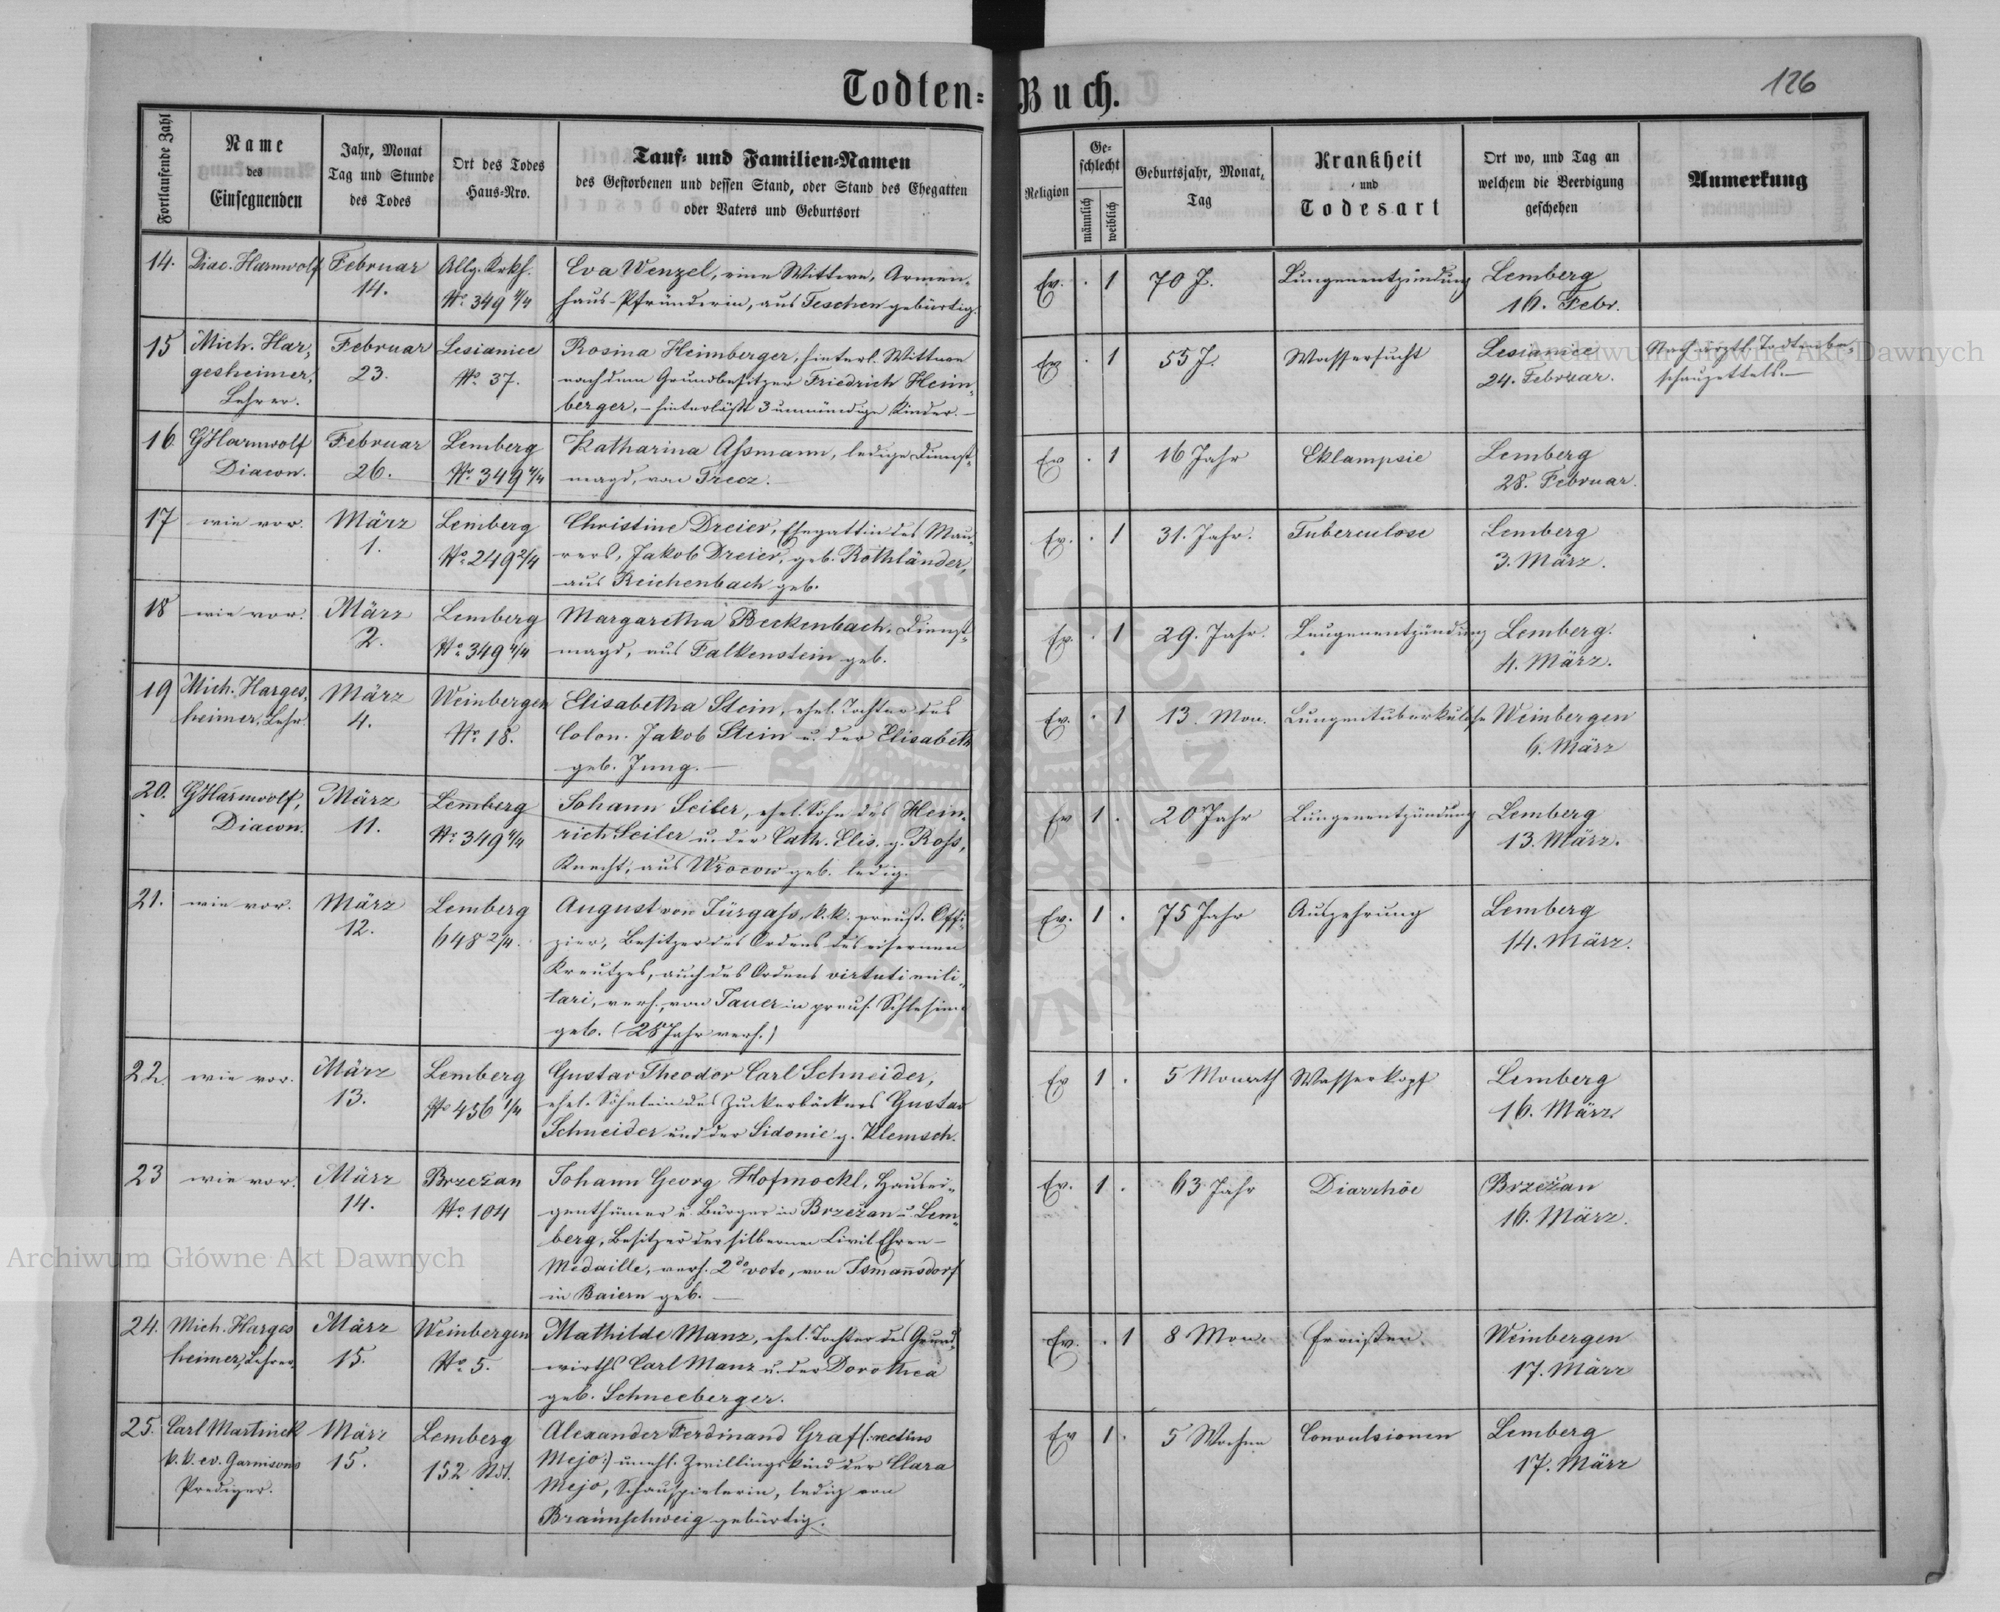 Todten-Buch.
126
Fortlaufende Zahl
Name
des
Einsegnenden
Jahr, Monat
Tag und Stunde
des Todes
Ort des Todes
Haus-Nro.
Tauf- und Familien-Namen
des Gestorbenen und dessen Stand, oder Stand des Ehegatten
oder Vaters und Geburtsort
Religion
Ge-
schlecht
männlich
weiblich
Geburtsjahr, Monat,
Tag
Krankheit
und
Todesart
Ort wo, und Tag an
welchem die Beerdigung
geschehen
Anmerkung
14. Diac. Harnwolf Februar Allg. Krkh. Eva Wenzel, eine Wittwe, Armen- Ev. . 1 70 J. Lungenentzündung Lemberg
14. No. 349 4/4 haus-Pfründerin, aus Teschen gebürtig. 16. Febr.
15 Mich. Har- Februar Lesianice Rosina Heimberger, hinterl. Wittwe Ev . 1 55 J. Wassersucht Lesianice Nach ärztl. Todtenbe-
gesheimer, 23. No. 37. nach dem Grundbesitzer Friedrich Heim- 24. Februar. schauzettels.—
Lehrer. berger, – hinterläßt 3 unmündige Kinder.—
16 GHarnwolf Februar Lemberg Katharina Aßmann, ledige Dienst- Ev . 1 16 Jahr Eklampsie Lemberg
Diacon. 26. No. 349 4/4 magd, von Trecz.— 28. Februar.
17 wie vor. März Lemberg Christine Dreier, Ehegattin des Mau- Ev. . 1 31. Jahr. Tuberculose Lemberg
1. No. 249 2/4 rers, Jakob Dreier, geb. Rothländer, 3. März.
aus Reichenbach geb.
18 wie vor. März Lemberg Margaretha Beckenbach, Dienst- Ev. . 1 29. Jahr. Lungenentzündung Lemberg.
2. No. 349 4/4 magd, aus Falkenstein geb. 4. März.
19 Mich. Harges- März Weinbergen Elisabetha Stein, ehel. Tochter des Ev. . 1 13. Mon. Lungentuberkulose Weinbergen
heimer, Lehr. 4. No. 18. Colon. Jakob Stein u. der Elisabeth 6. März
geb. Jung.—
20. GHarnwolf, März Lemberg Johann Seiler, ehel. Sohn des Hein- Ev 1 . 20 Jahr Lungenentzündung Lemberg
Diacon. 11. No. 349 4/4 rich Seiler u. der Cath. Elis. g. Roß, 13. März.
Knecht, aus Wrocow geb. ledig.
21. wie vor. März Lemberg August von Fürgaß, k. k. preuß. Offi- Ev. 1 . 75 Jahr Auszehrung Lemberg
12. 648 2/4. zier, Besitzer des Ordens des eisernen 14. März.
Kreutzes, auch des Ordens virtuti mili-
tari, verh., von Jauer in preuß. Schlesien
geb. (28 Jahr verh.)
22. wie vor. März Lemberg Gustav Theodor Carl Schneider, Ev 1 . 5 Monath Wasserkopf Lemberg
13. No 456 1/4 ehel. Söhnlein des Zuckerbäckers Gustav 16. März
Schneider und der Sidonie g. Klemsch.
23 wie vor. März Brzeżan Johann Georg Hofmockl, Hausei- Ev. 1 . 63 Jahr Diarrhöe Brzeżan
14. No. 104 genthümer u. Bürger in Brzeżan u. Lem- 16. März.
berg, Besitzer der silbernen Civil Ehren-
Medaille, verh. 2do voto, von Ismannsdorf
in Baiern geb.—
24. Mich. Harges März Weinbergen Mathilde Manz, ehel. Tochter des Grund- Ev. . 1 8 Mon. Fraisen Weinbergen
heimer, Lehrer 15. No. 5. wirths Carl Manz u. der Dorothea 17. März
geb. Schneeberger.
25. Carl Martinek März Lemberg Alexander Ferdinand Graf (:rectius Ev 1 . 5 Wochen Convulsionen Lemberg
k. k. ev. Garnisons 15. 152 Mdt. Mejo:) unehl. Zwillingskind der Clara 17. März
Prediger. Mejo, Schauspielerin, ledig von
Braunschweig gebürtig.
Archiwum Główne Akt Dawnych
Archiwum Główne Akt Dawnych